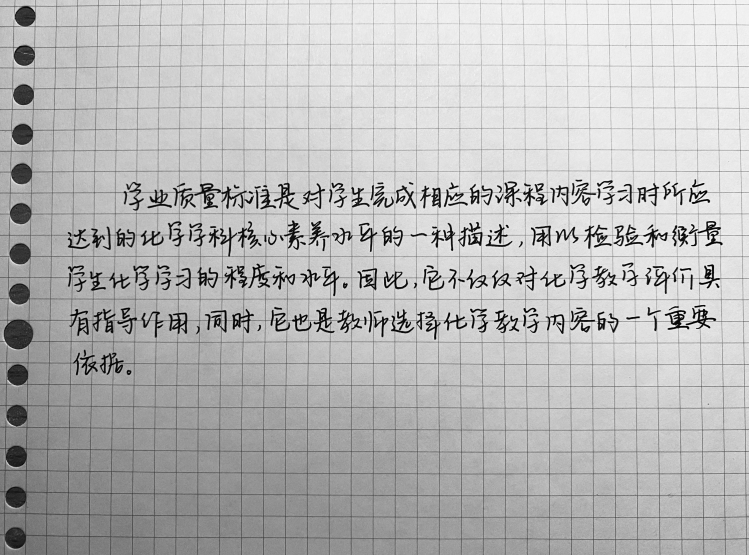 学业质量标准是对学生完成相应的课程内容学习时所应
达到的化学学科核心素养水平的一种描述,用以检验和衡量
学生化学学习的程度和水平。因此,它不仅仅对化学教学评价具
有指导作用,同时,它也是教师选择化学教学内容的一个重要
依据。